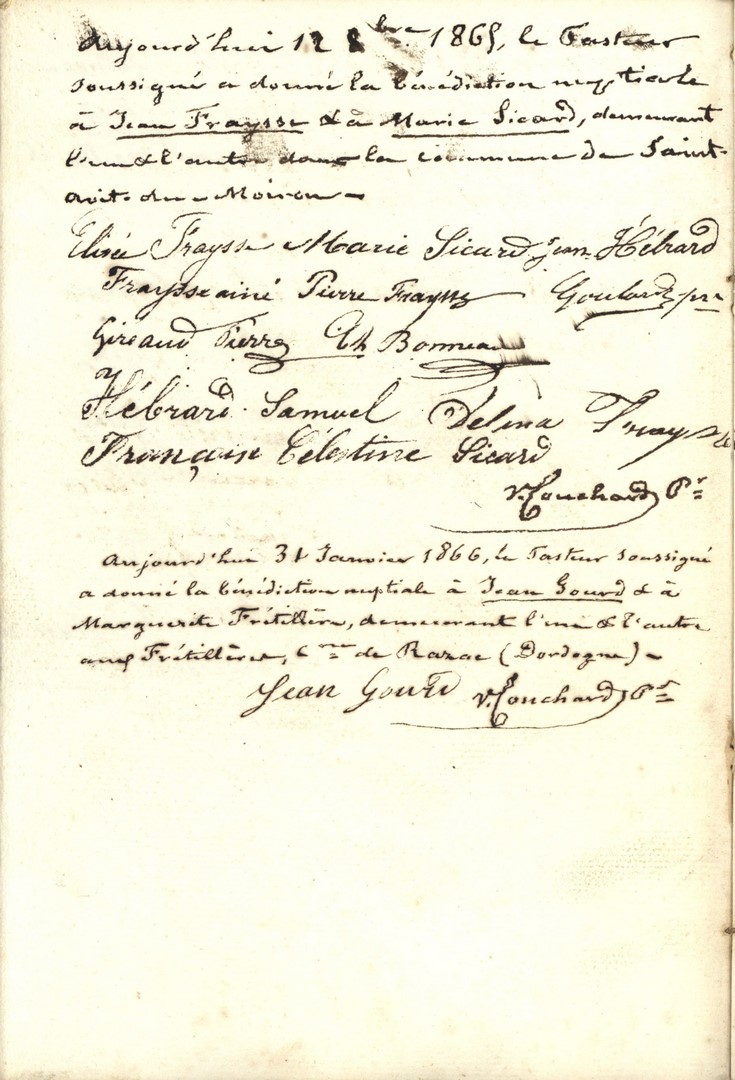 Aujourd'hui 12 8bre 1865, le Pasteur
soussigné a donné la bénédiction nuptiale
à Jean Fraysse & à Marie Sicard, demeurant
l'un & l'autre dans la commune de Saint-
Avit-du-Moiron
Elisée Fraysse Marie Sicard Jean Hébrard
Fraysse ainé Pierre Fraysse Goulard
Gireaud Pierre Bonneau
Hébrard Samuel Delina Fraysse
Françoise Célestine Sicard
V. Couchard Pr
Aujourd'hui 31 Janvier 1866, le Pasteur soussigné
a donné la bénédiction nuptiale à Jean Gourd & à
Marguerite Frétillère, demeurant l'un & l'autre
aux Frétillères, Cne de Razac (Dordogne)
Jean Gourd V. Couchard Pr